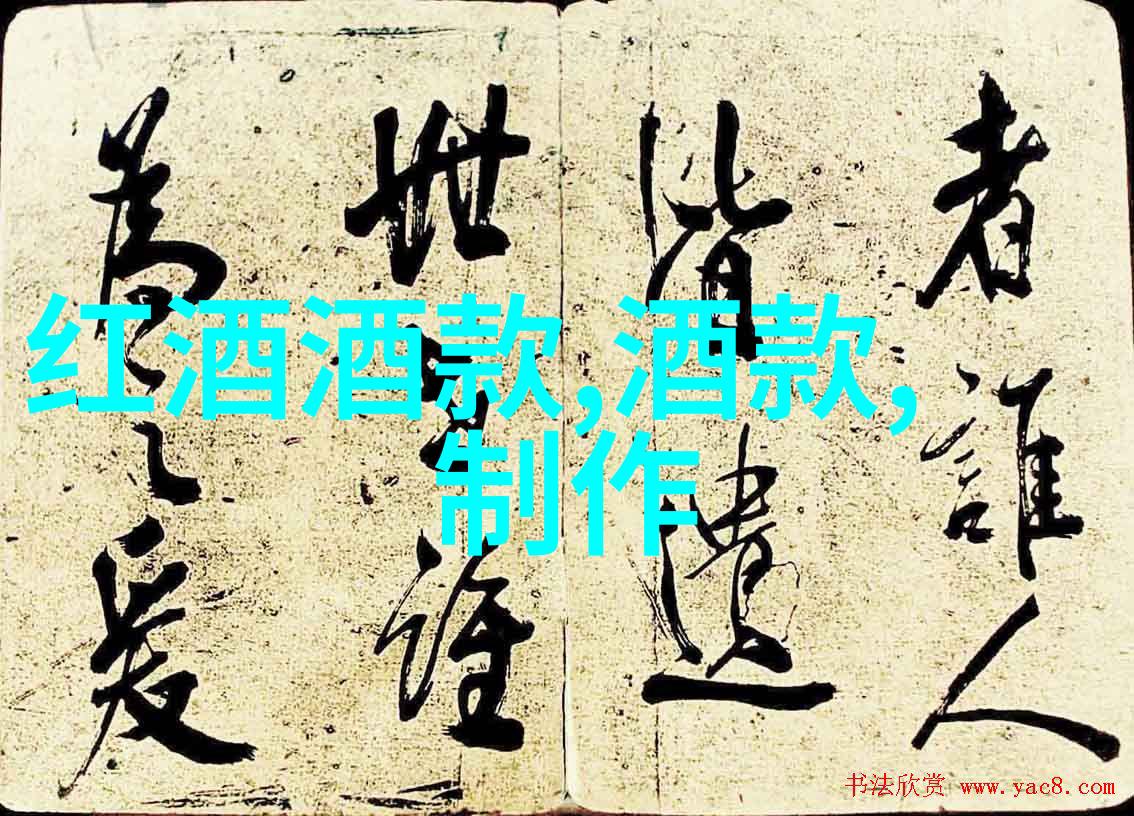 者誰人
皆遺
世誰
為爰
红酒酒款,酒款,
制作
书法欣赏 www.yac8.com